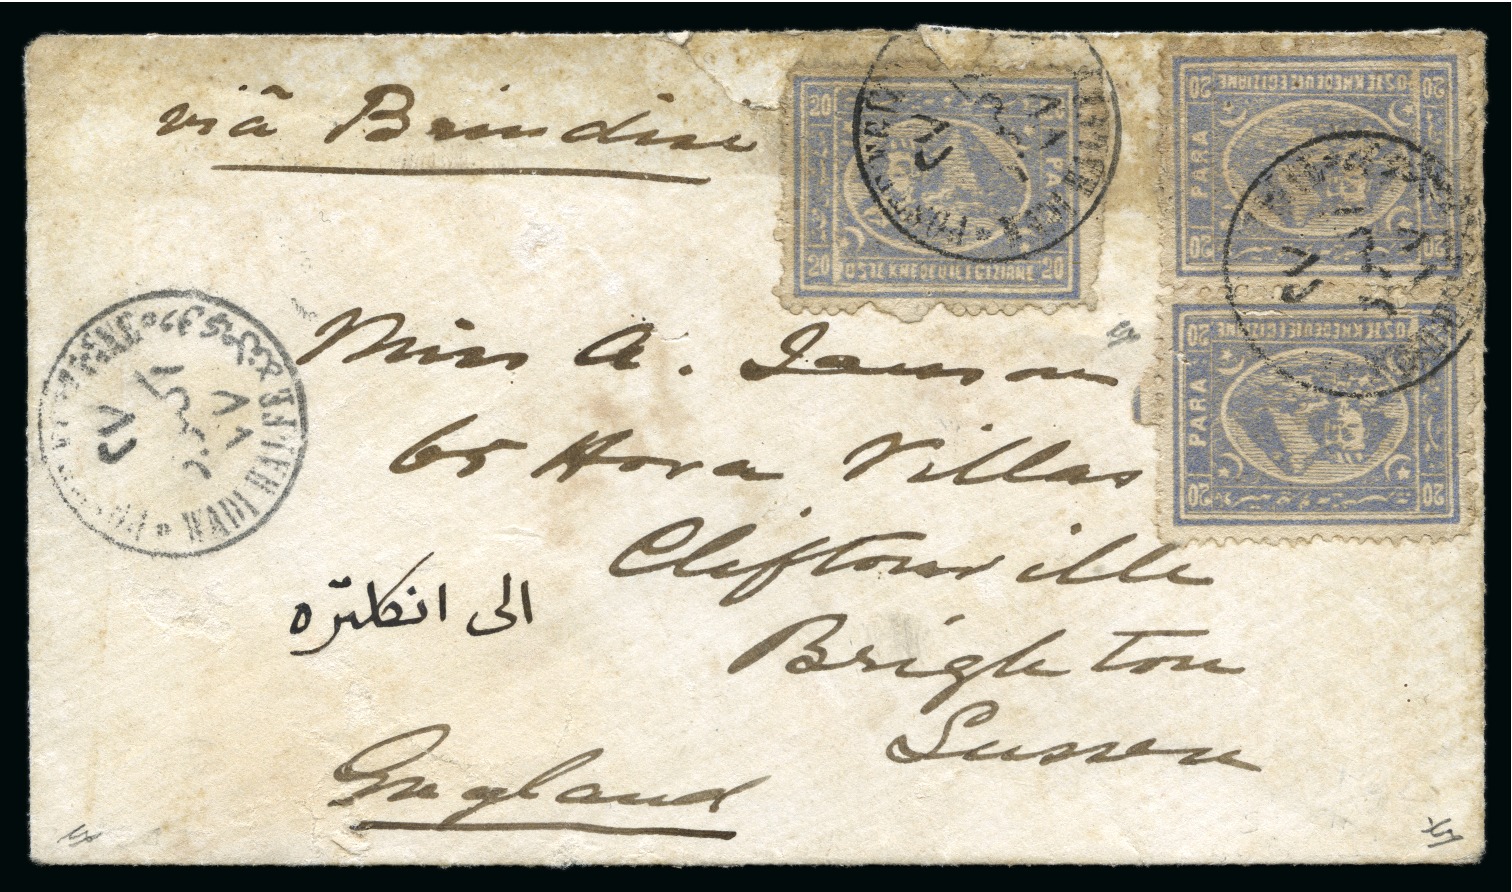 viâ Brindisi
20 20
PARA
20 20
D.S.LE KHEDEUIE EGIZIANE
20 20
D.S.LE KHEDEUIE EGIZIANE
PARA
20 20
20 20
D.S.LE KHEDEUIE EGIZIANE
PARA
20 20
WADI HALFA
Miss A.
65 Hova Villas
Cliftonville
Brighton
Sussex
England
الى انكلتره